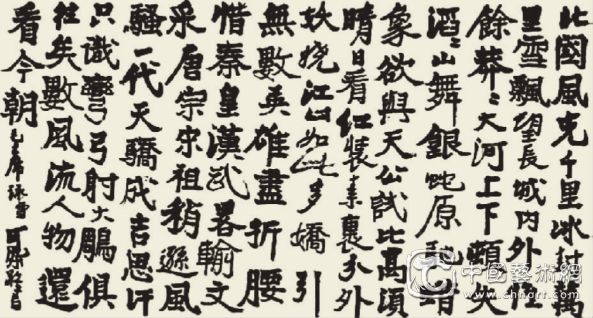 北國風光千里冰封萬
里雪飄望長城內外惟
餘莽々大河上下頓失
滔々山舞銀蛇原馳蜡
象欲與天公試比高須
晴日看紅裝素裹分外
妖嬈江山如此多嬌引
無數英雄盡折腰
惜秦皇漢武畧輸文
采唐宗宋祖稍遜風
騷一代天驕成吉思汗
只識彎弓射大鵰俱
往矣數風流人物還
看今朝毛主席詠雪
中國藝術網